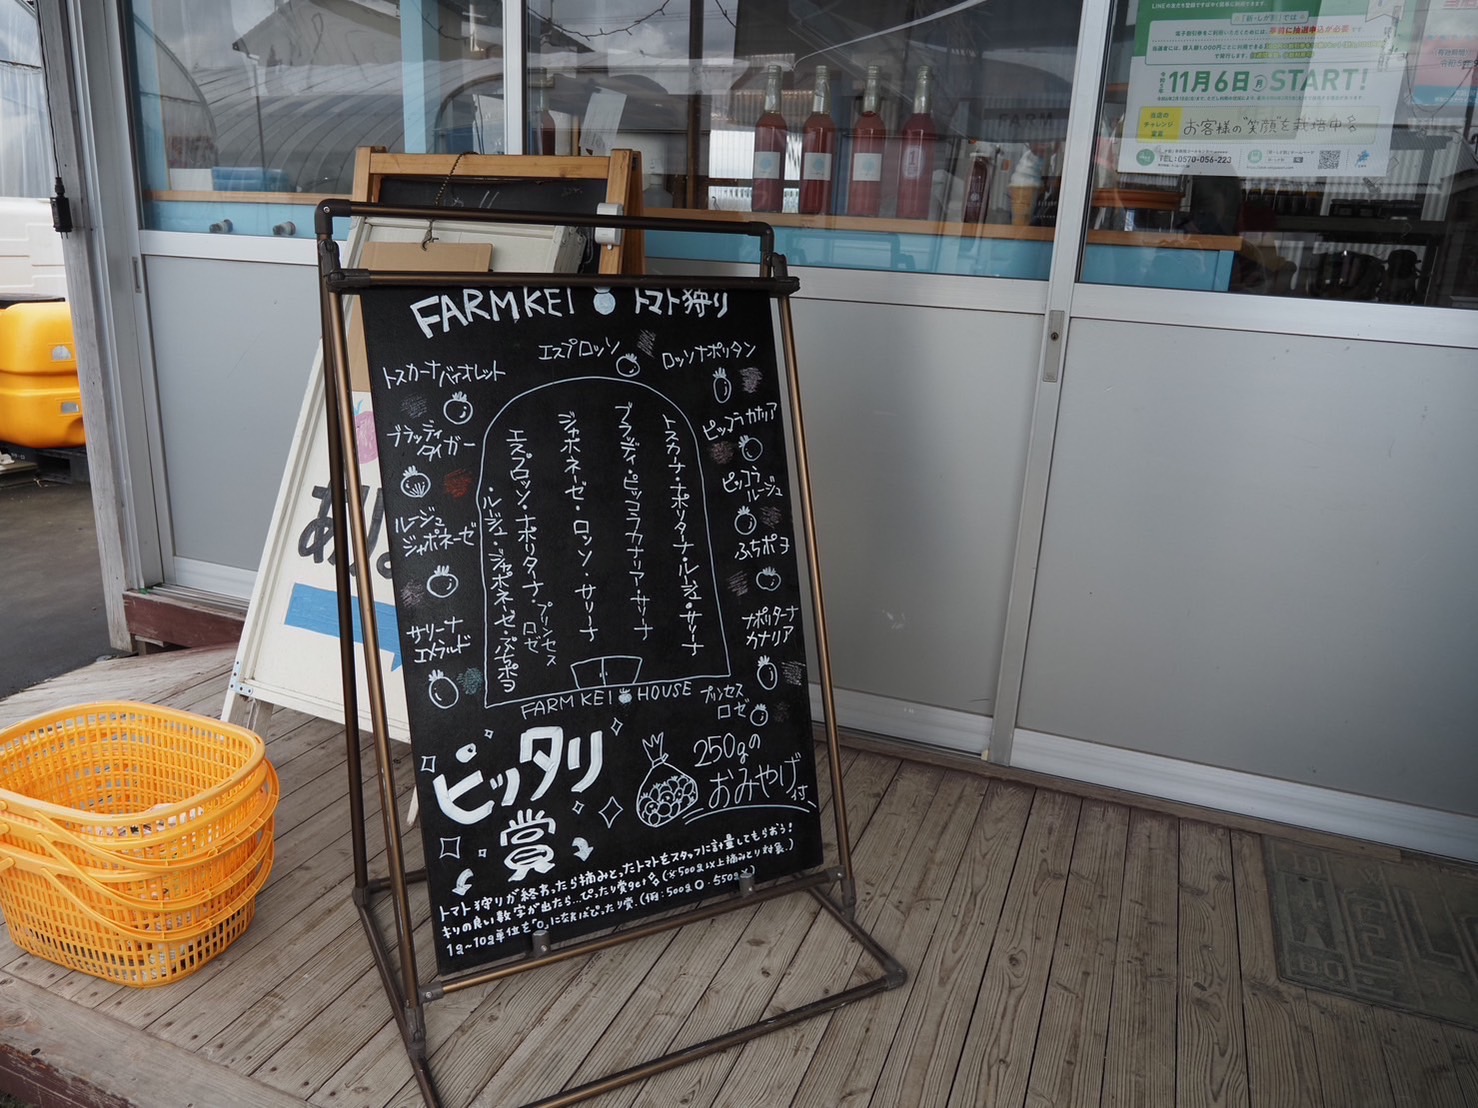 FARM KEI トマト狩り
エスプロッソ
ロッソナポリタン
トスカーナバイオレット
ブラッディ
タイガー
ルージュ
ジャポネーゼ
サリーナ
エメラルド
ピッコラカナリア
ピッコラ
ルージュ
ぷちポヨ
ナポリターナ
カナリア
プリンセス
ロゼ
トスカーナ・ナポリターナ・ルージュ・サリーナ
ブラッディ・ピッコラカナリア・サリーナ
ジャポネーゼ・ロッソ・サリーナ
エスプロッソ・ナポリターナ・プリンセス
ロゼ
・ルージュ・ジャポネーゼ・ぷちポヨ
FARM KEI HOUSE
ピッタリ
賞
250gの
おみやげ付
トマト狩りが終わったら摘みとったトマトをスタッフに計量してもらおう!
キリの良い数字が出たら…ぴったり賞get (※500g以上摘みとり対象。)
1g~10g単位を「0」になればぴったり賞。(例:500g○・550g×)
あり
11月6日 月 START!
当店の
チャレンジ
宣言
お客様の"笑顔"を栽培中
TEL:0570-056-223
事前に抽選申込が必要です